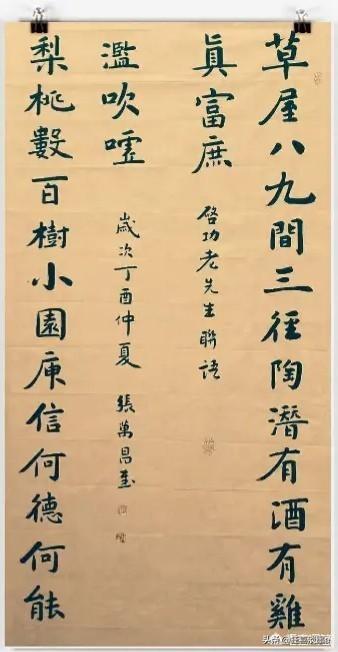 草屋八九間三徑陶潛有酒有雞
眞富庶
啓功老先生聯語
梨桃數百樹小園庾信何德何能
濫吹噓
歲次丁酉仲夏 張萬昌
头条